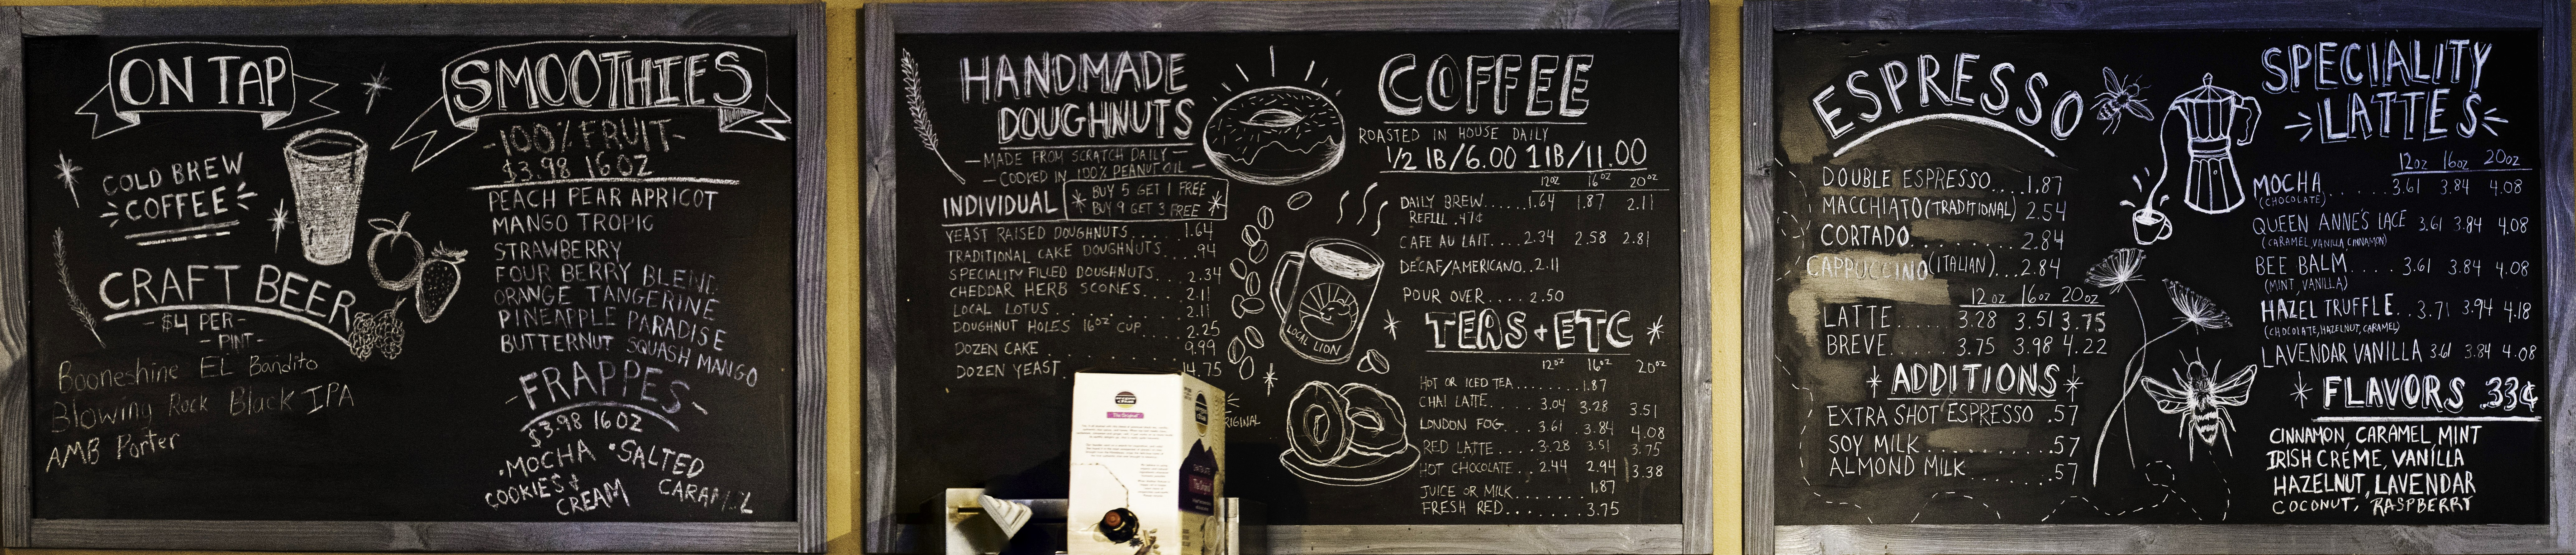 ON TAP
COLD BREW
COFFEE
CRAFT BEER
$4 PER
PINT
Booneshine EL Bandito
Blowing Rock Black IPA
AMB Porter
SMOOTHIES
-100% FRUIT-
$3.98 16OZ
PEACH PEAR APRICOT
MANGO TROPIC
STRAWBERRY
FOUR BERRY BLEND
ORANGE TANGERINE
PINEAPPLE PARADISE
BUTTERNUT SQUASH MANGO
-FRAPPES-
$3.98 16OZ
•MOCHA •SALTED
COOKIES & CARAMEL
CREAM
HANDMADE
DOUGHNUTS
—MADE FROM SCRATCH DAILY—
—COOKED IN 100% PEANUT OIL
INDIVIDUAL
BUY 5 GET 1 FREE
BUY 9 GET 3 FREE
YEAST RAISED DOUGHNUTS.... 1.64
TRADITIONAL CAKE DOUGHNUTS... .94
SPECIALITY FILLED DOUGHNUTS... 2.34
CHEDDAR HERB SCONES.... 2.11
LOCAL LOTUS...... 2.11
DOUGHNUT HOLES 16OZ CUP... 2.25
DOZEN CAKE ...... 9.99
DOZEN YEAST...... 14.75
COFFEE
ROASTED IN HOUSE DAILY
1/2 lB/6.00 1lB/11.00
12OZ 16OZ 20OZ
DAILY BREW......1.64 1.87 2.11
REFILL .47¢
CAFE AU LAIT....2.34 2.58 2.81
DECAF/AMERICANO..2.11
POUR OVER.... 2.50
LOCAL LION
TEAS + ETC
12OZ 16OZ 20OZ
HOT OR ICED TEA....... 1.87
CHAI LATTE..... 3.04 3.28 3.51
LONDON FOG... 3.61 3.84 4.08
RED LATTE... 3.28 3.51 3.75
HOT CHOCOLATE.. 2.44 2.94 3.38
JUICE OR MILK....... 1.87
FRESH RED....... 3.75
ESPRESSO
DOUBLE ESPRESSO....1.87
MACCHIATO (TRADITIONAL) 2.54
CORTADO......... 2.84
CAPPUCCINO (ITALIAN)...2.84
12OZ 16OZ 20OZ
LATTE..... 3.28 3.51 3.75
BREVE..... 3.75 3.98 4.22
ADDITIONS
EXTRA SHOT ESPRESSO .57
SOY MILK.......... .57
ALMOND MILK....... .57
SPECIALITY
LATTES
12OZ 16OZ 20OZ
MOCHA...... 3.61 3.84 4.08
(CHOCOLATE)
QUEEN ANNE'S LACE 3.61 3.84 4.08
(CARAMEL, VANILLA, CINNAMON)
BEE BALM.... 3.61 3.84 4.08
(MINT, VANILLA)
HAZEL TRUFFLE... 3.71 3.94 4.18
(CHOCOLATE, HAZELNUT, CARAMEL)
LAVENDAR VANILLA 3.61 3.84 4.08
FLAVORS .33¢
CINNAMON, CARAMEL, MINT
IRISH CRÉME, VANILLA
HAZELNUT, LAVENDAR
COCONUT, RASPBERRY